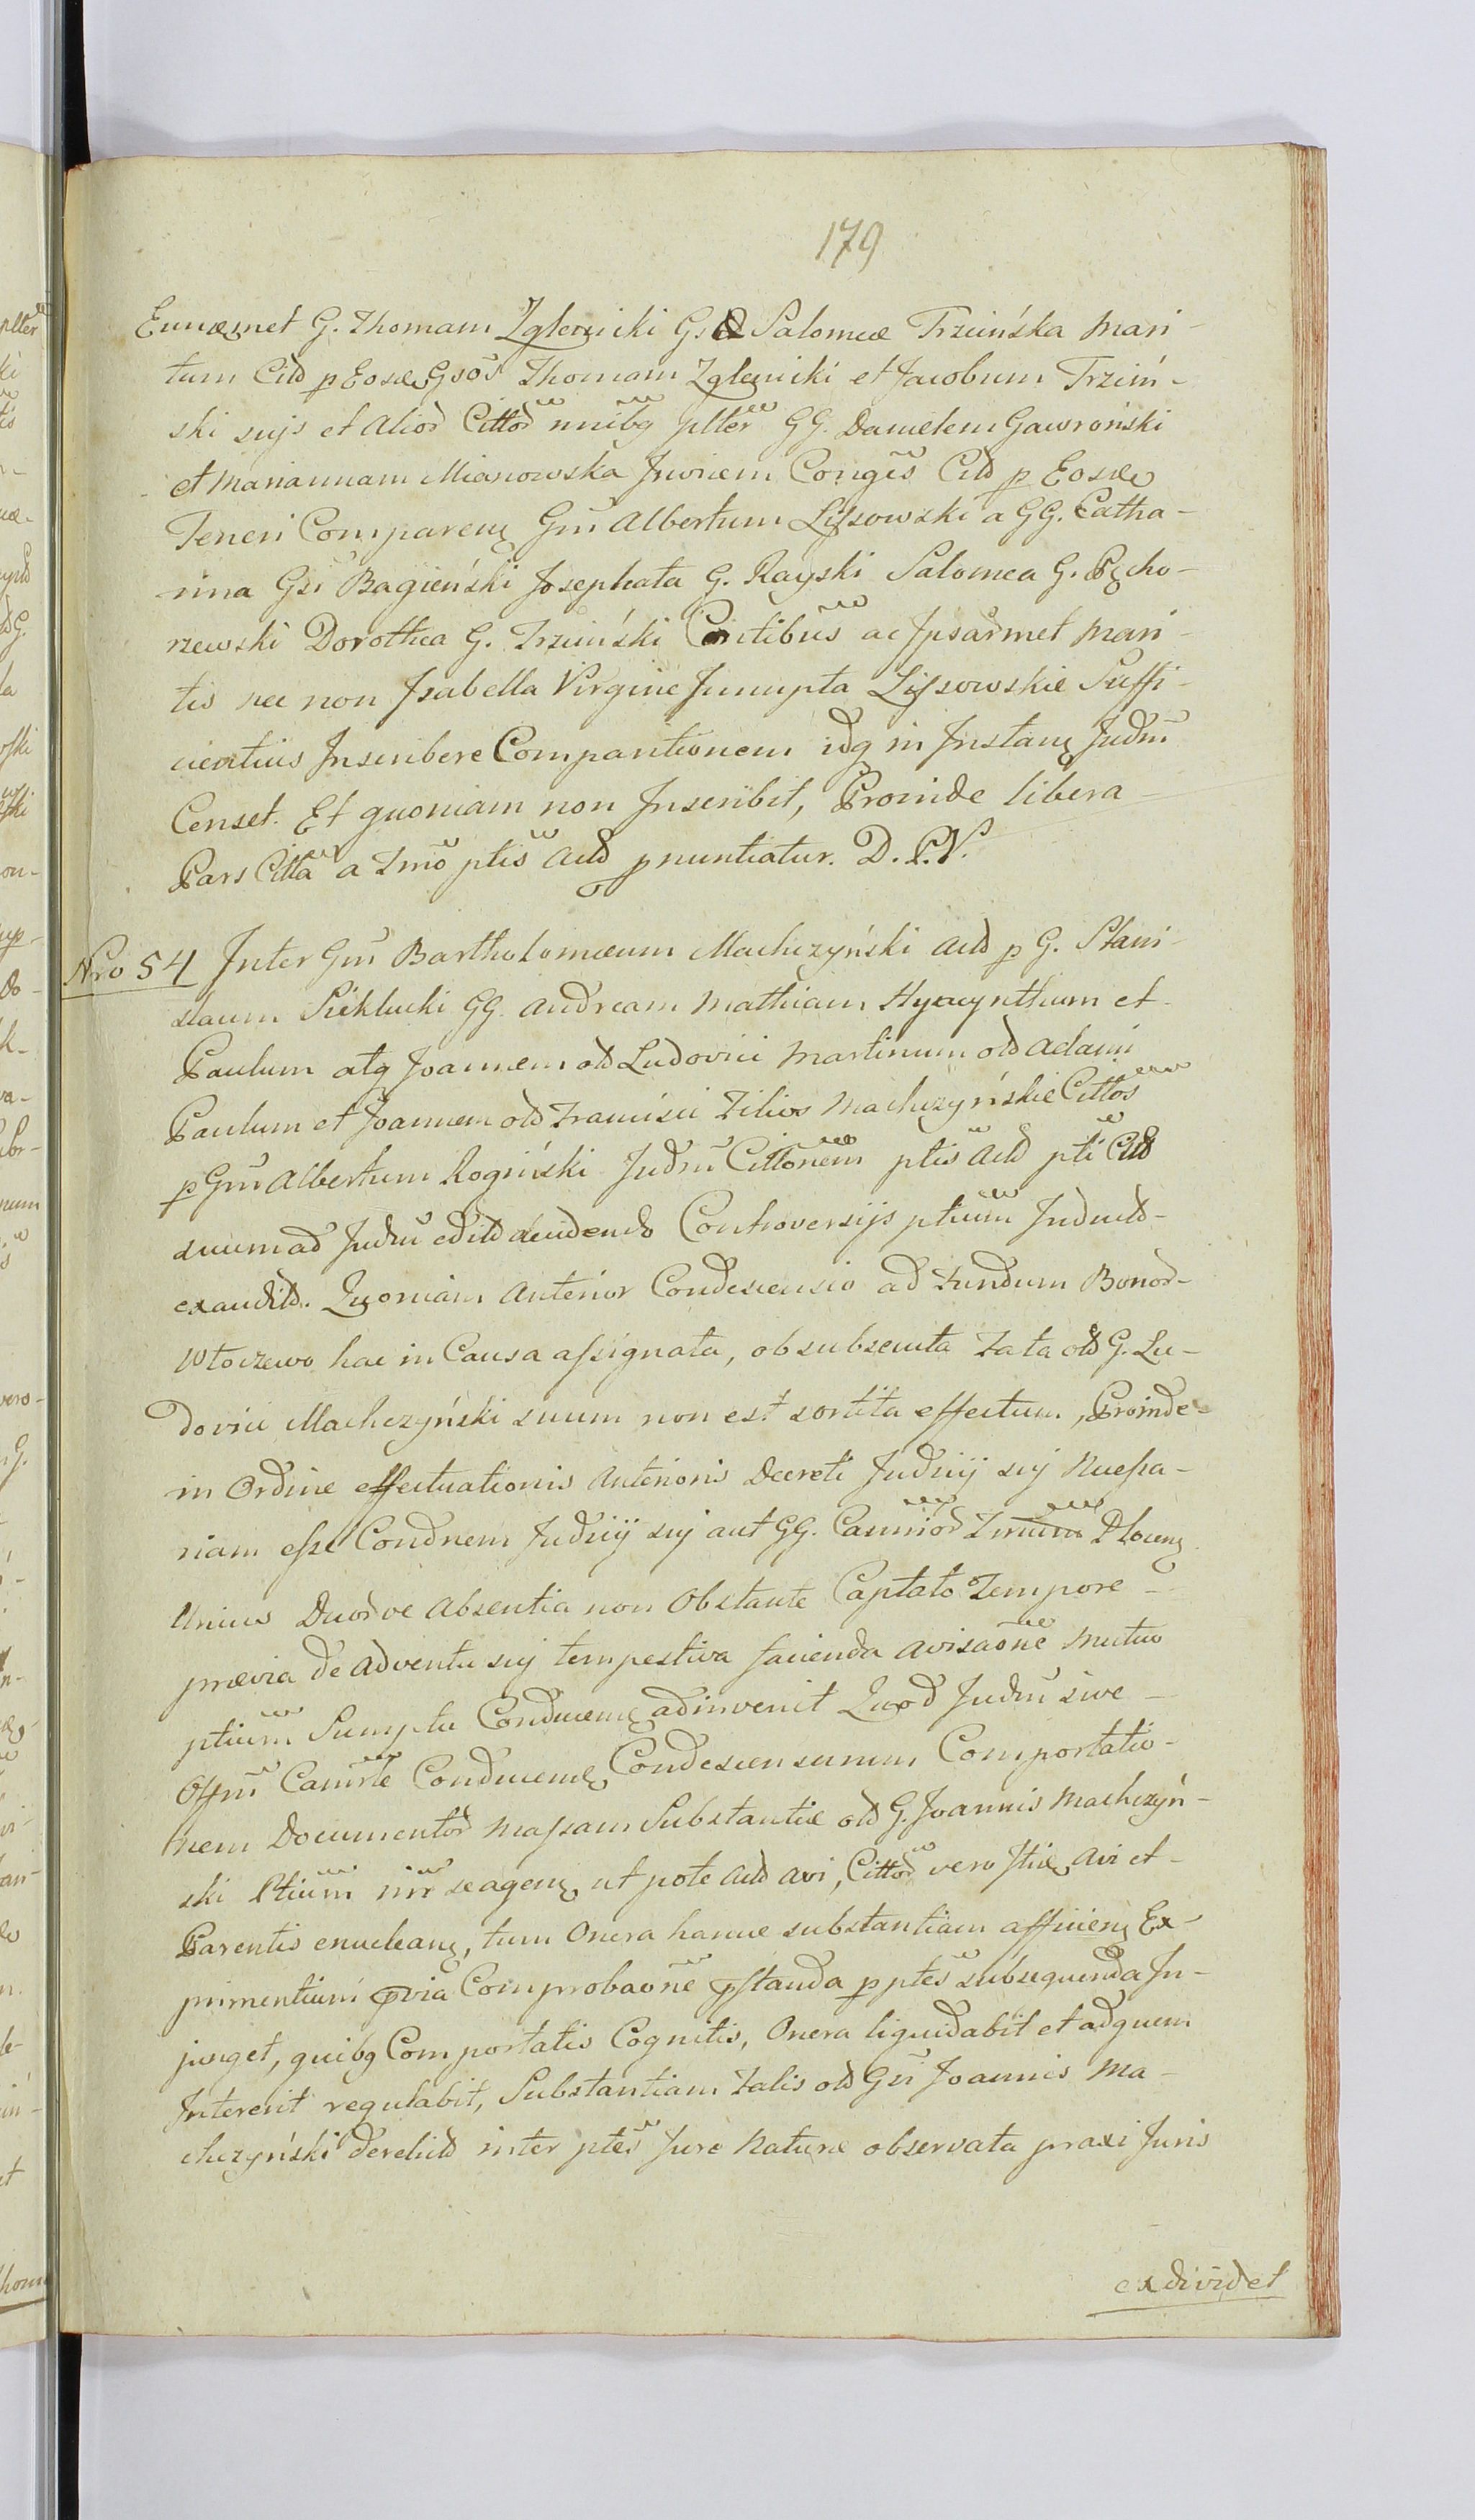 179
Eundemet G. Thomam Zglenicki G. Salomeæ Trzcińska Mari-
tum Citd p Eosdem Gsos Thomam Zglenicki et Jacobum Trzciń-
ski suis et Aliod Cittod nnibq plter GG. Danielem Gawroński
et Mariannam Mianowska Invicem Congēs Citd p Eosde
Teneri Comparenq Gm Albertum Lissowski a GG. Catha-
rina Gsi Bagieński Josephata G. Rayski Salomea G. Pęcho-
rzewski Dorothea G. Trzciński Contibus ac Ipsarmet Mari-
tis nec non Isabella Virgine Innupta Lissowskie Suffi-
cientius Inscribere Comparitionem idq in Instanq Judm
Censet. Et quoniam non Inscribit, Proinde libera-
Pars Citta a Tmo ptis Actd pnuntiatur. D. P. V.
Nro 54 Inter Gm Bartholomæum Machczyński Actd p G. Stani-
slaum Sieklucki GG. Andream Mathiam Hyacynthum et
Paulum atq Joannem otd Ludovici Martinum otd Adami
Paulum et Joannem otd Francisci Filios Machczyńskie Cittos
p Gm Albertum Rogiński Judm Cittonem ptis Actd pti Citd
suum ad Judm editd decidendo Controversijs ptium Induitd-
exauditd. Quoniam Anterior Condescensio ad Fundum Bonod-
Wtoczewo hac in Causa assignata, ob subsecuta Fata otd G. Lu-
dovici Machczyński suum non est sortita effectum, Proinde-
in Ordine effectuationis Anterioris Decreti Judicij sij Necessa-
riam esse Condnem Judicij sij aut GG. Camriod Tmum Plocenq
Unius Duodve Absentia non Obstante Captato Tempore-
prævia de Adventu sij tempestiva facienda avisaone Mutuo
ptium Sumptu Conducenq adinvenit Quod Judm sive-
Offm Camrle Conducend Condescensurum Comportatio-
nem Documentod Massam Substantiæ otd G. Joannis Machczyń-
ski Ptium inr se agenq ut pote Actd Avi, Cittod vero Avi et-
Parentis enucleanq, tum Onera hancce substantiam afficienq Ex-
primentium pvia Comprobaone pstanda p ptes subsequenda In-
junget, quibq Comportatis Cognitis, Onera liquidabit et adquem
Intererit regulabit, Substantiam Talis otd Gsi Joannis Ma-
chczyński derelictd inter ptes Jure Naturæ observata praxi Juris
exdividet